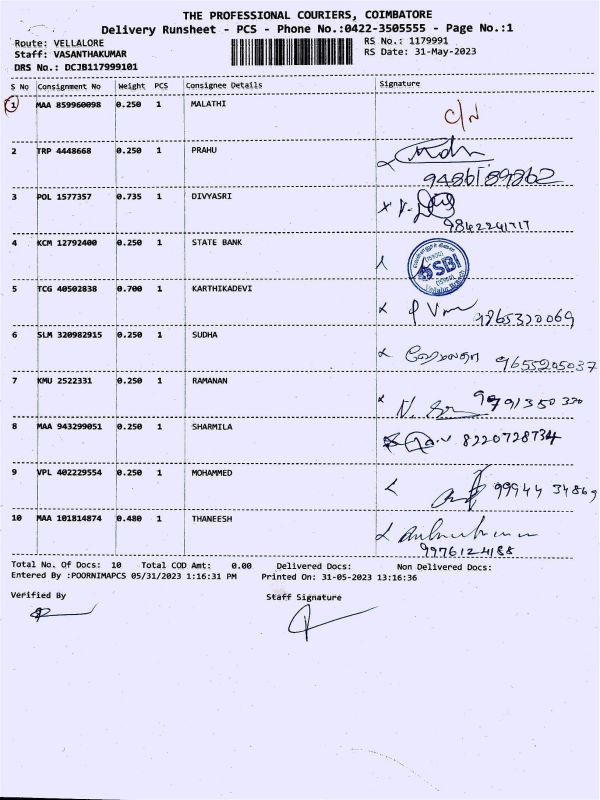 THE PROFESSIONAL COURIERS, COIMBATORE
Delivery Runsheet - PCS - Phone No.:0422-3505555 - Page No.:1
Route: VELLALORE
RS No.: 1179991
Staff: VASANTHAKUMAR
RS Date: 31-May-2023
DRS No.: DCJB117999101
S No Consignment No Weight PCS Consignee Details Signature
1 MAA 859960098 0.250 1 MALATHI C/N
2 TRP 4448668 0.250 1 PRAHU
9486189862
3 POL 1577357 0.735 1 DIVYASRI
9842241717
4 KCM 12792400 0.250 1 STATE BANK SBI
5 TCG 40502838 0.700 1 KARTHIKADEVI
9865320069
6 SLM 320982915 0.250 1 SUDHA
9655205037
7 KMU 2522331 0.250 1 RAMANAN
9791350330
8 MAA 943299051 0.250 1 SHARMILA 8220728734
9 VPL 402229554 0.250 1 MOHAMMED 99944 34869
10 MAA 101814874 0.480 1 THANEESH
9976124188
Total No. Of Docs: 10 Total COD Amt: 0.00 Delivered Docs: Non Delivered Docs:
Entered By :POORNIMAPCS 05/31/2023 1:16:31 PM Printed On: 31-05-2023 13:16:36
Verified By Staff Signature